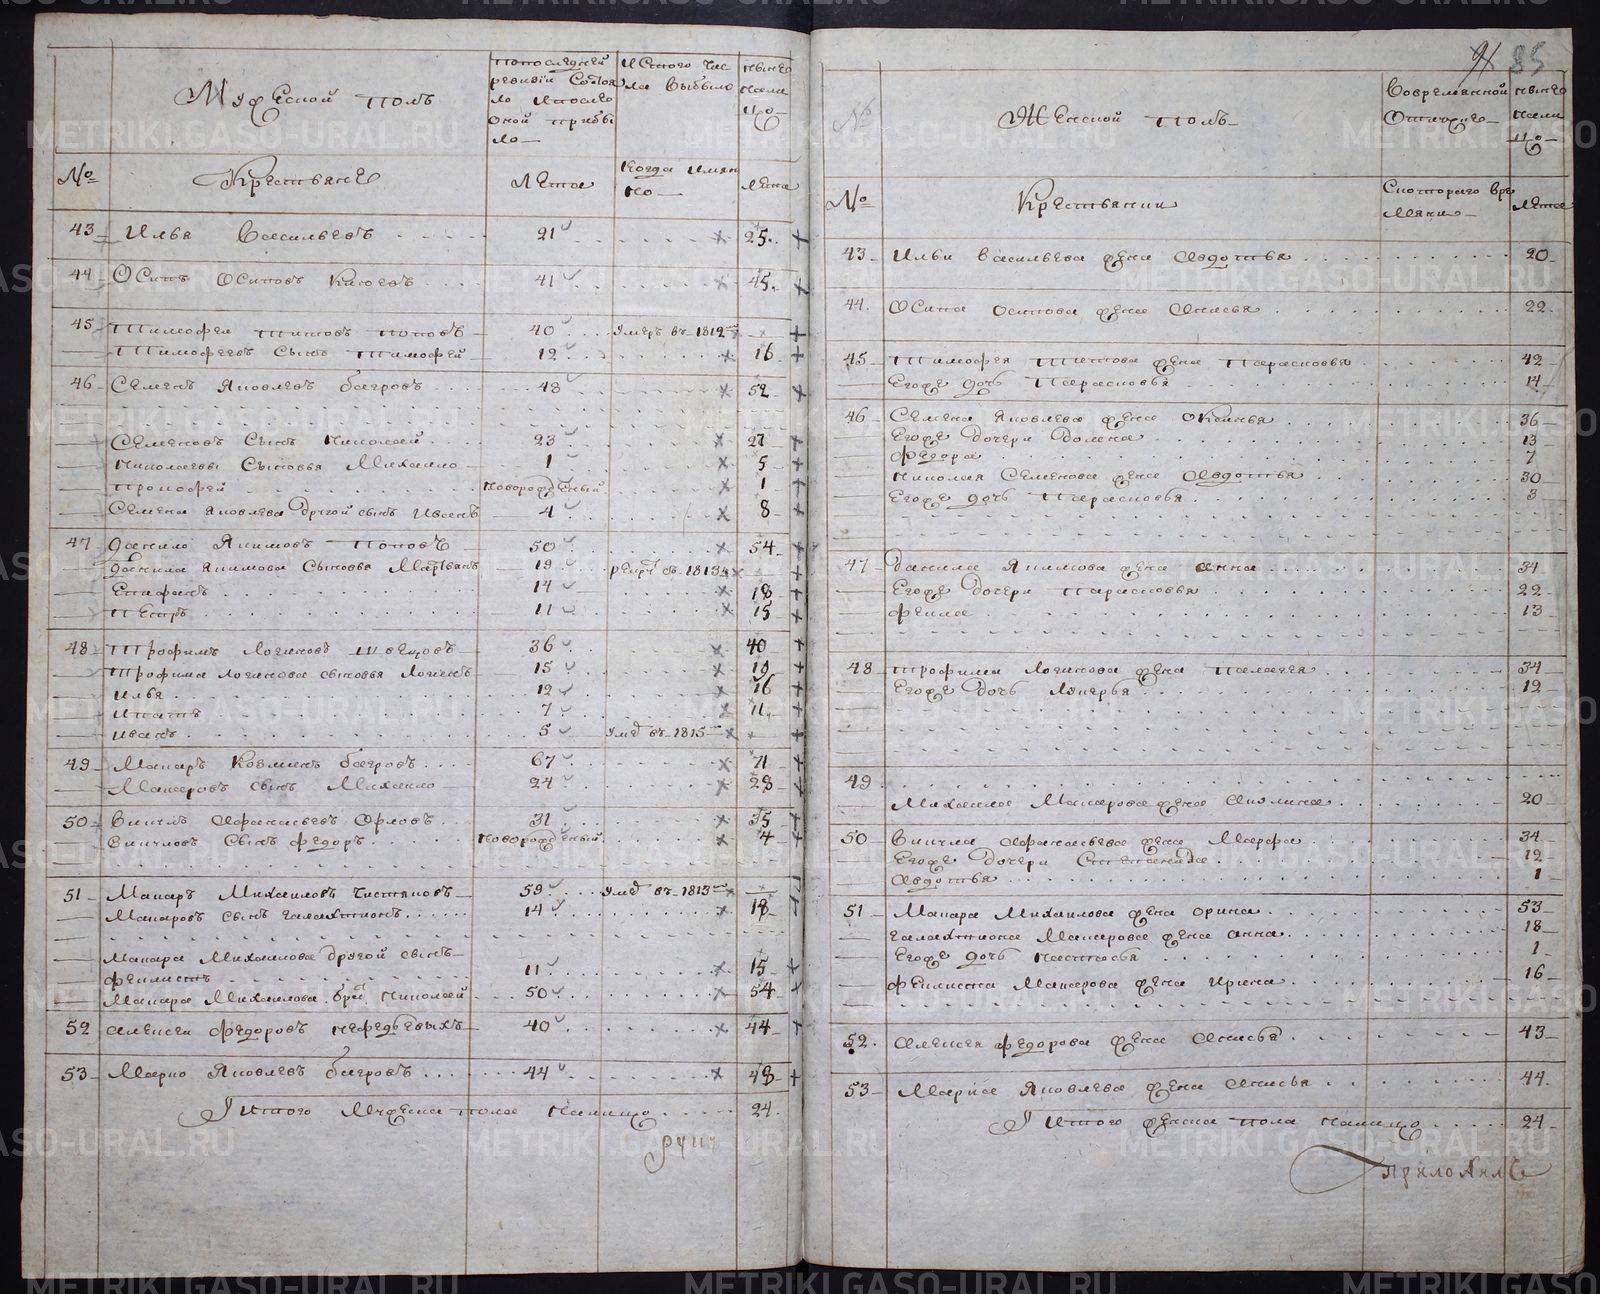 Мужеской полъ
по последней ревизiи состоя
ло и после
оной прибы
ло
ис того чис
ла выбыло
ныне
нали
цо
№
Крестьяне
Лета
когда имян
но
лета
43 Илья Васильевъ 21 25
44 Осипъ Осиповъ 41 45
45 Тимофей Титовъ Поповъ 40 умеръ въ 1812 м
Тимофеевъ сынъ Тимофей 12 16
46 Семенъ Яковлевъ Багровъ 48 52
Семеновъ сынъ Николай 23 27
Николаевы сыновья Михайло 1 5
Прокофей новорожденый 1
Семена Яковлева другой сынъ Иванъ 4 8
47 Данило Якимовъ Поповъ 50 54
Данила Якимова сыновья Мартьянъ 19 рекру въ 1813 м
Епифанъ 14 18
Петръ 11 15
48 Трофимъ Логиновъ Швецовъ 36 40
Трофима Логинова сыновья Логинъ 15 19
Илья 12 16
Ипатъ 7 11
Иванъ 5 умр въ 1815 м
49 Макаръ Козминъ Багровъ 67 71
Макаровъ сынъ Михайло 24 28
50 Викулъ Афонасьевъ Орловъ 31 35
Викуловъ сынъ Федоръ новорожденый 4
51 Макаръ Михайловъ Чистяковъ 59 умр въ 1813 м
Макаровъ сынъ Галактионъ 14 18
Макара Михайлова другой сынъ
Филистъ 11 15
Макара Михайлова братъ Николай 50 54
52 Алексей Федоровъ Нефедьевыхъ 40 44
53 Марко Яковлевъ Багровъ 44 48
Итого мужеска пола налицо 24
91 85
№
Женской полъ
во временной
отлучке
ныне
нали
цо
№
Крестьянки
с которого вре
мяни
Лета
43 Ильи Васильева жена Авдотья 20
44 Осипа Осипова жена Анисья 22
45 Тимофея Титова жена Парасковья 42
Егоже дочь Парасковья 14
46 Семена Яковлева жена 36
Егоже дочери 13
Федора 7
Николая Семенова жена Авдотья 30
Егоже дочь Парасковья 3
47 Данила Якимова жена Анна 34
Егоже дочери Парасковья 22
Фекла 13
48 Трофима Логинова жена Палагея 34
Егоже дочь Лукерья 12
49
Михайла Макарова жена Акилина 20
50 Викула Афонасьева жена Марфа 34
Егоже дочери Степанида 12
Авдотья 1
51 Макара Михайлова жена Орина 53
Галактиона Макарова жена Анна 18
Егоже дочь Настасья 1
Филиста Макарова жена Ирина 16
52 Алексея Федорова жена Анисья 43
53 Марка Яковлева жена Анисья 44
Итого женска пола налицо 24
руку
приложилъ
METRIKI.GASO-URAL.RU